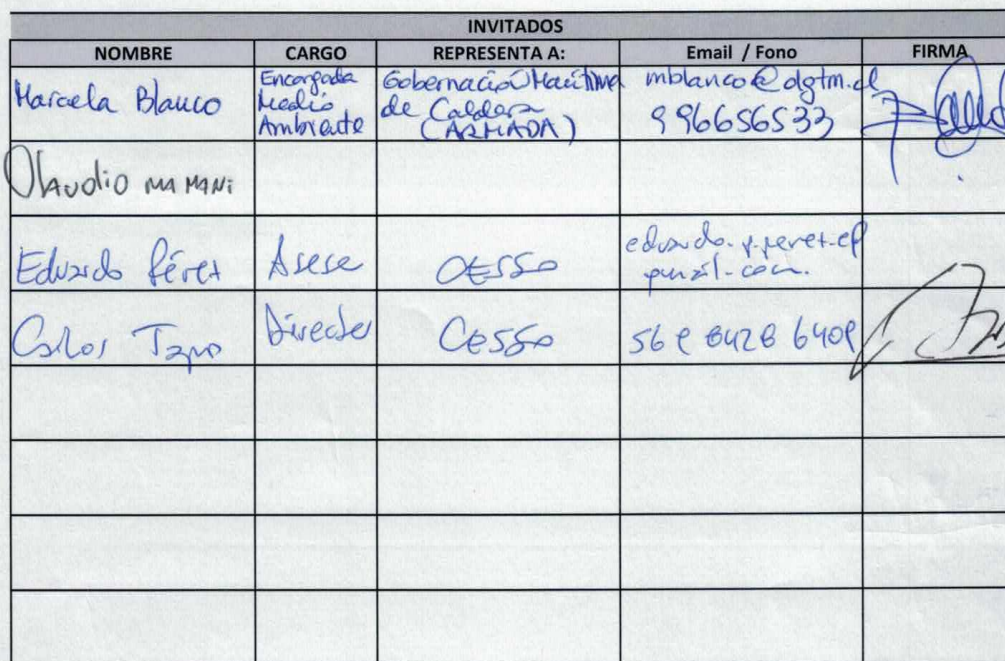 INVITADOS
NOMBRE CARGO REPRESENTA A: Email / Fono FIRMA
Marcela Blanco Encargada Medio Ambiente Gobernación Marítima de Caldera (ARMADA) mblanco@dgtm.cl 996656533
Claudio MAMANi
Eduardo Pérez Asese OESSO
Carlos Director CESSO